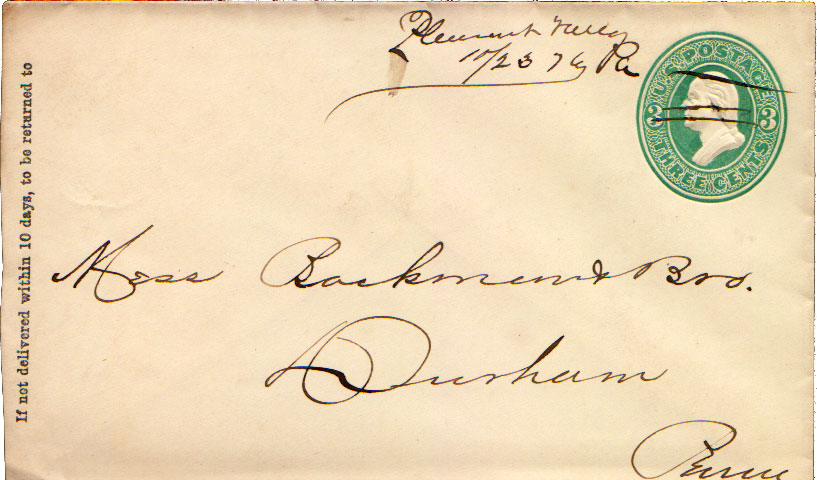 Pleasant Valley
10/23 79 Pa
U.S. POSTAGE
3 3
THREE CENTS
If not delivered within 10 days, to be returned to
Mess Backman & Bro.
Durham
Penn